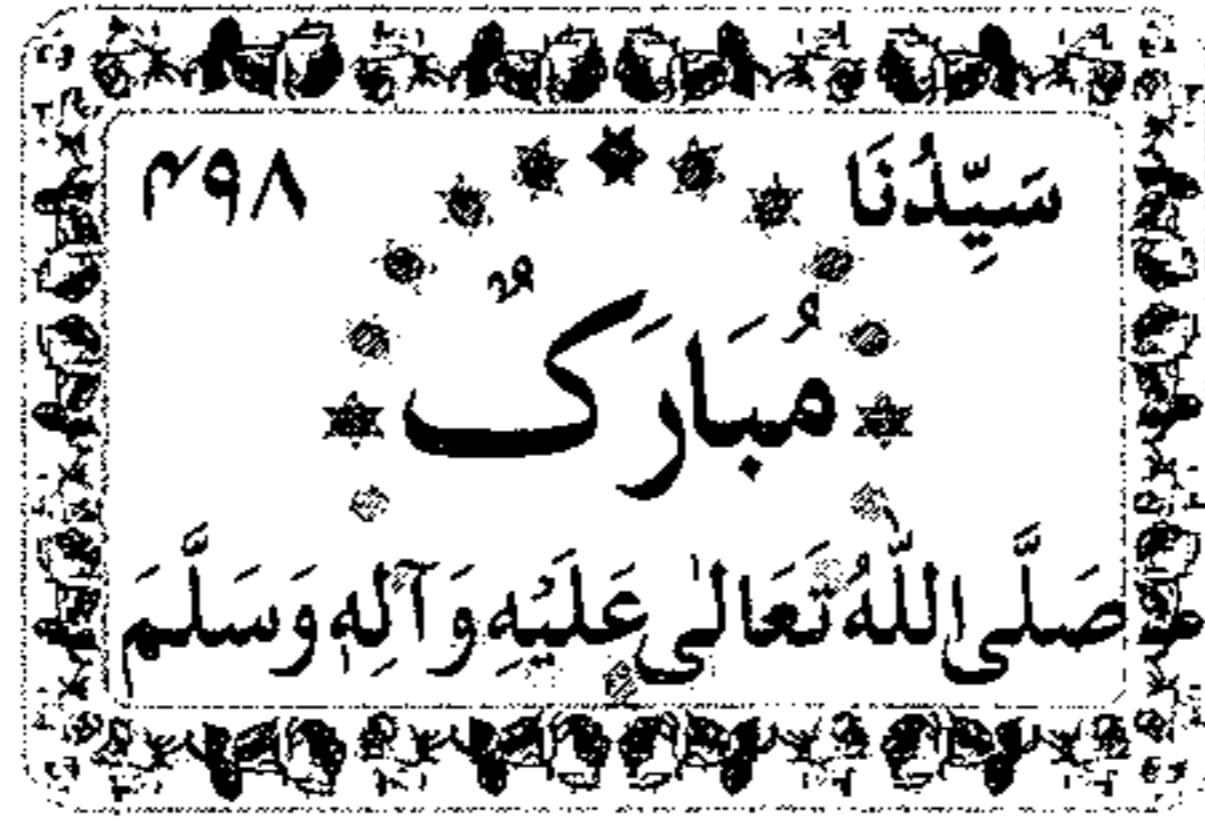 سَيِّدُنَا ۴۹۸
مُبَارَكٌ
صَلَّى اللّٰهُ تَعَالٰى عَلَيْهِ وَآلِهٖ وَسَلَّمَ